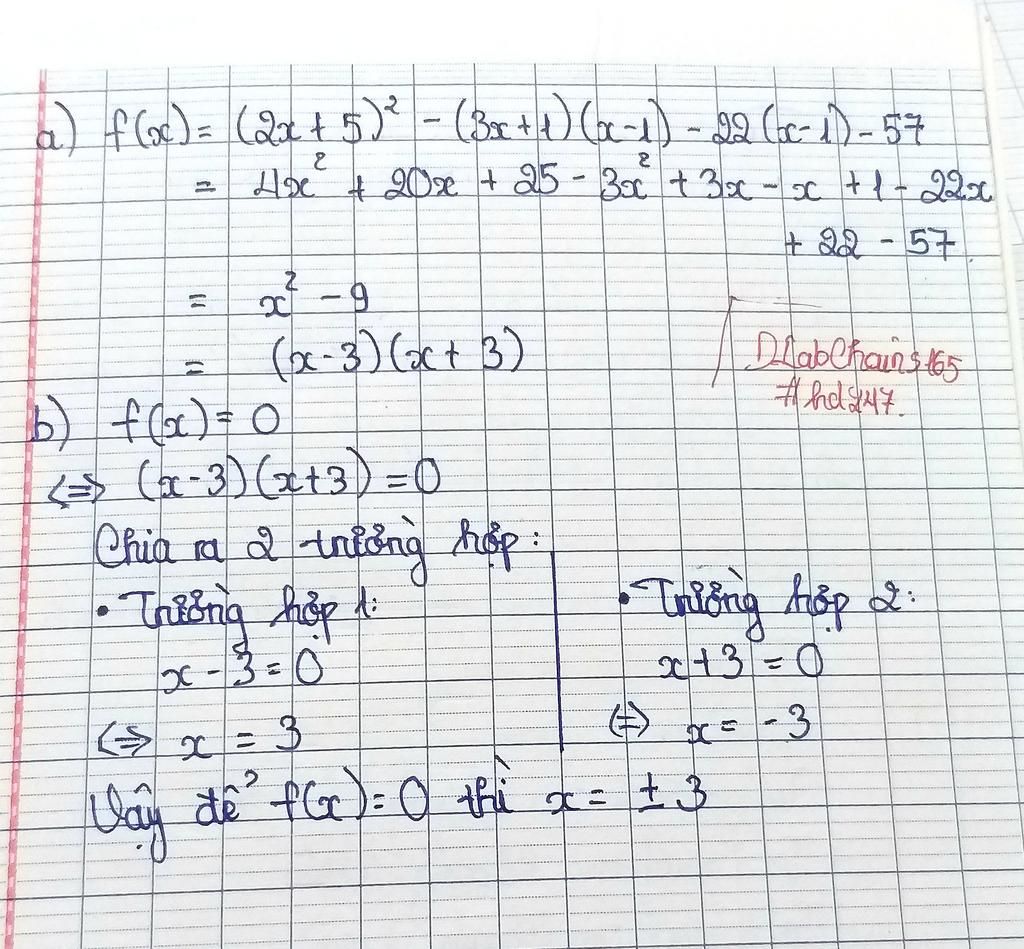 a) f(x) = (2x + 5)² - (3x + 1)(x - 1) - 22(x - 1) - 57
= 4x² + 20x + 25 - 3x² + 3x - x + 1 - 22x
+ 22 - 57
= x² - 9
= (x - 3)(x + 3)
DLabChains165
#hd247.
b) f(x) = 0
<=> (x - 3)(x + 3) = 0
Chia ra 2 trường hợp:
• Trường hợp 1:
x - 3 = 0
<=> x = 3
• Trường hợp 2:
x + 3 = 0
<=> x = -3
Vậy để f(x) = 0 thì x = ± 3